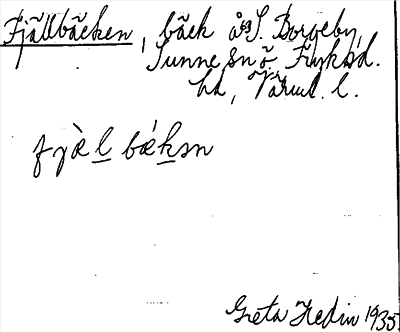 Fjällbäcken, bäck å S. Borgeby,
Sunne sn ö. Fryksd.
hd, Värml. l.
fjæ̀l bǽkən
Greta Hedin 1935